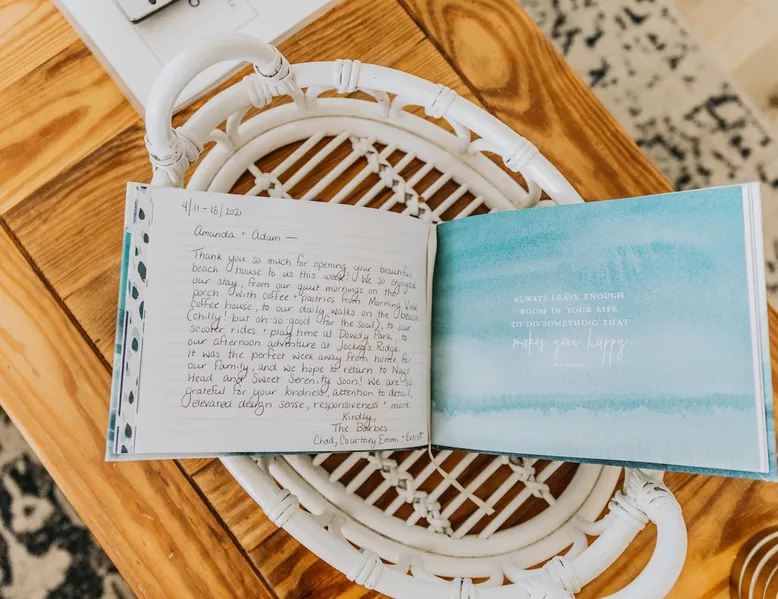 4/11-18/2021
Amanda + Adam —
Thank you so much for opening your beautiful
beach house to us this week! We so enjoyed
our stay, from our quiet mornings on the
porch with coffee + pastries from Morning View
Coffee house, to our daily walks on the beach
(chilly! but oh-so-good for the soul), to our
scooter rides + playtime at Dowdy Park, to
our afternoon adventure at Jockey's Ridge.
It was the perfect week away from home for
our family, and we hope to return to Nags
Head and Sweet Serenity soon! We are so
grateful for your kindness, attention to detail,
elevated design sense, responsiveness + more.
Kindly,
The Barbes
Chad, Courtney, Emmi, + Everett
ALWAYS LEAVE ENOUGH
ROOM IN YOUR LIFE
TO DO SOMETHING THAT
makes you happy